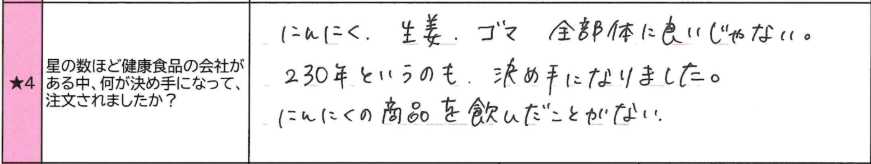 ★4
星の数ほど健康食品の会社が
ある中、何が決め手になって、
注文されましたか？
にんにく. 生姜. ゴマ 全部体に良いじゃない。
230年というのも. 決め手になりました。
にんにくの商品を飲んだことがない.